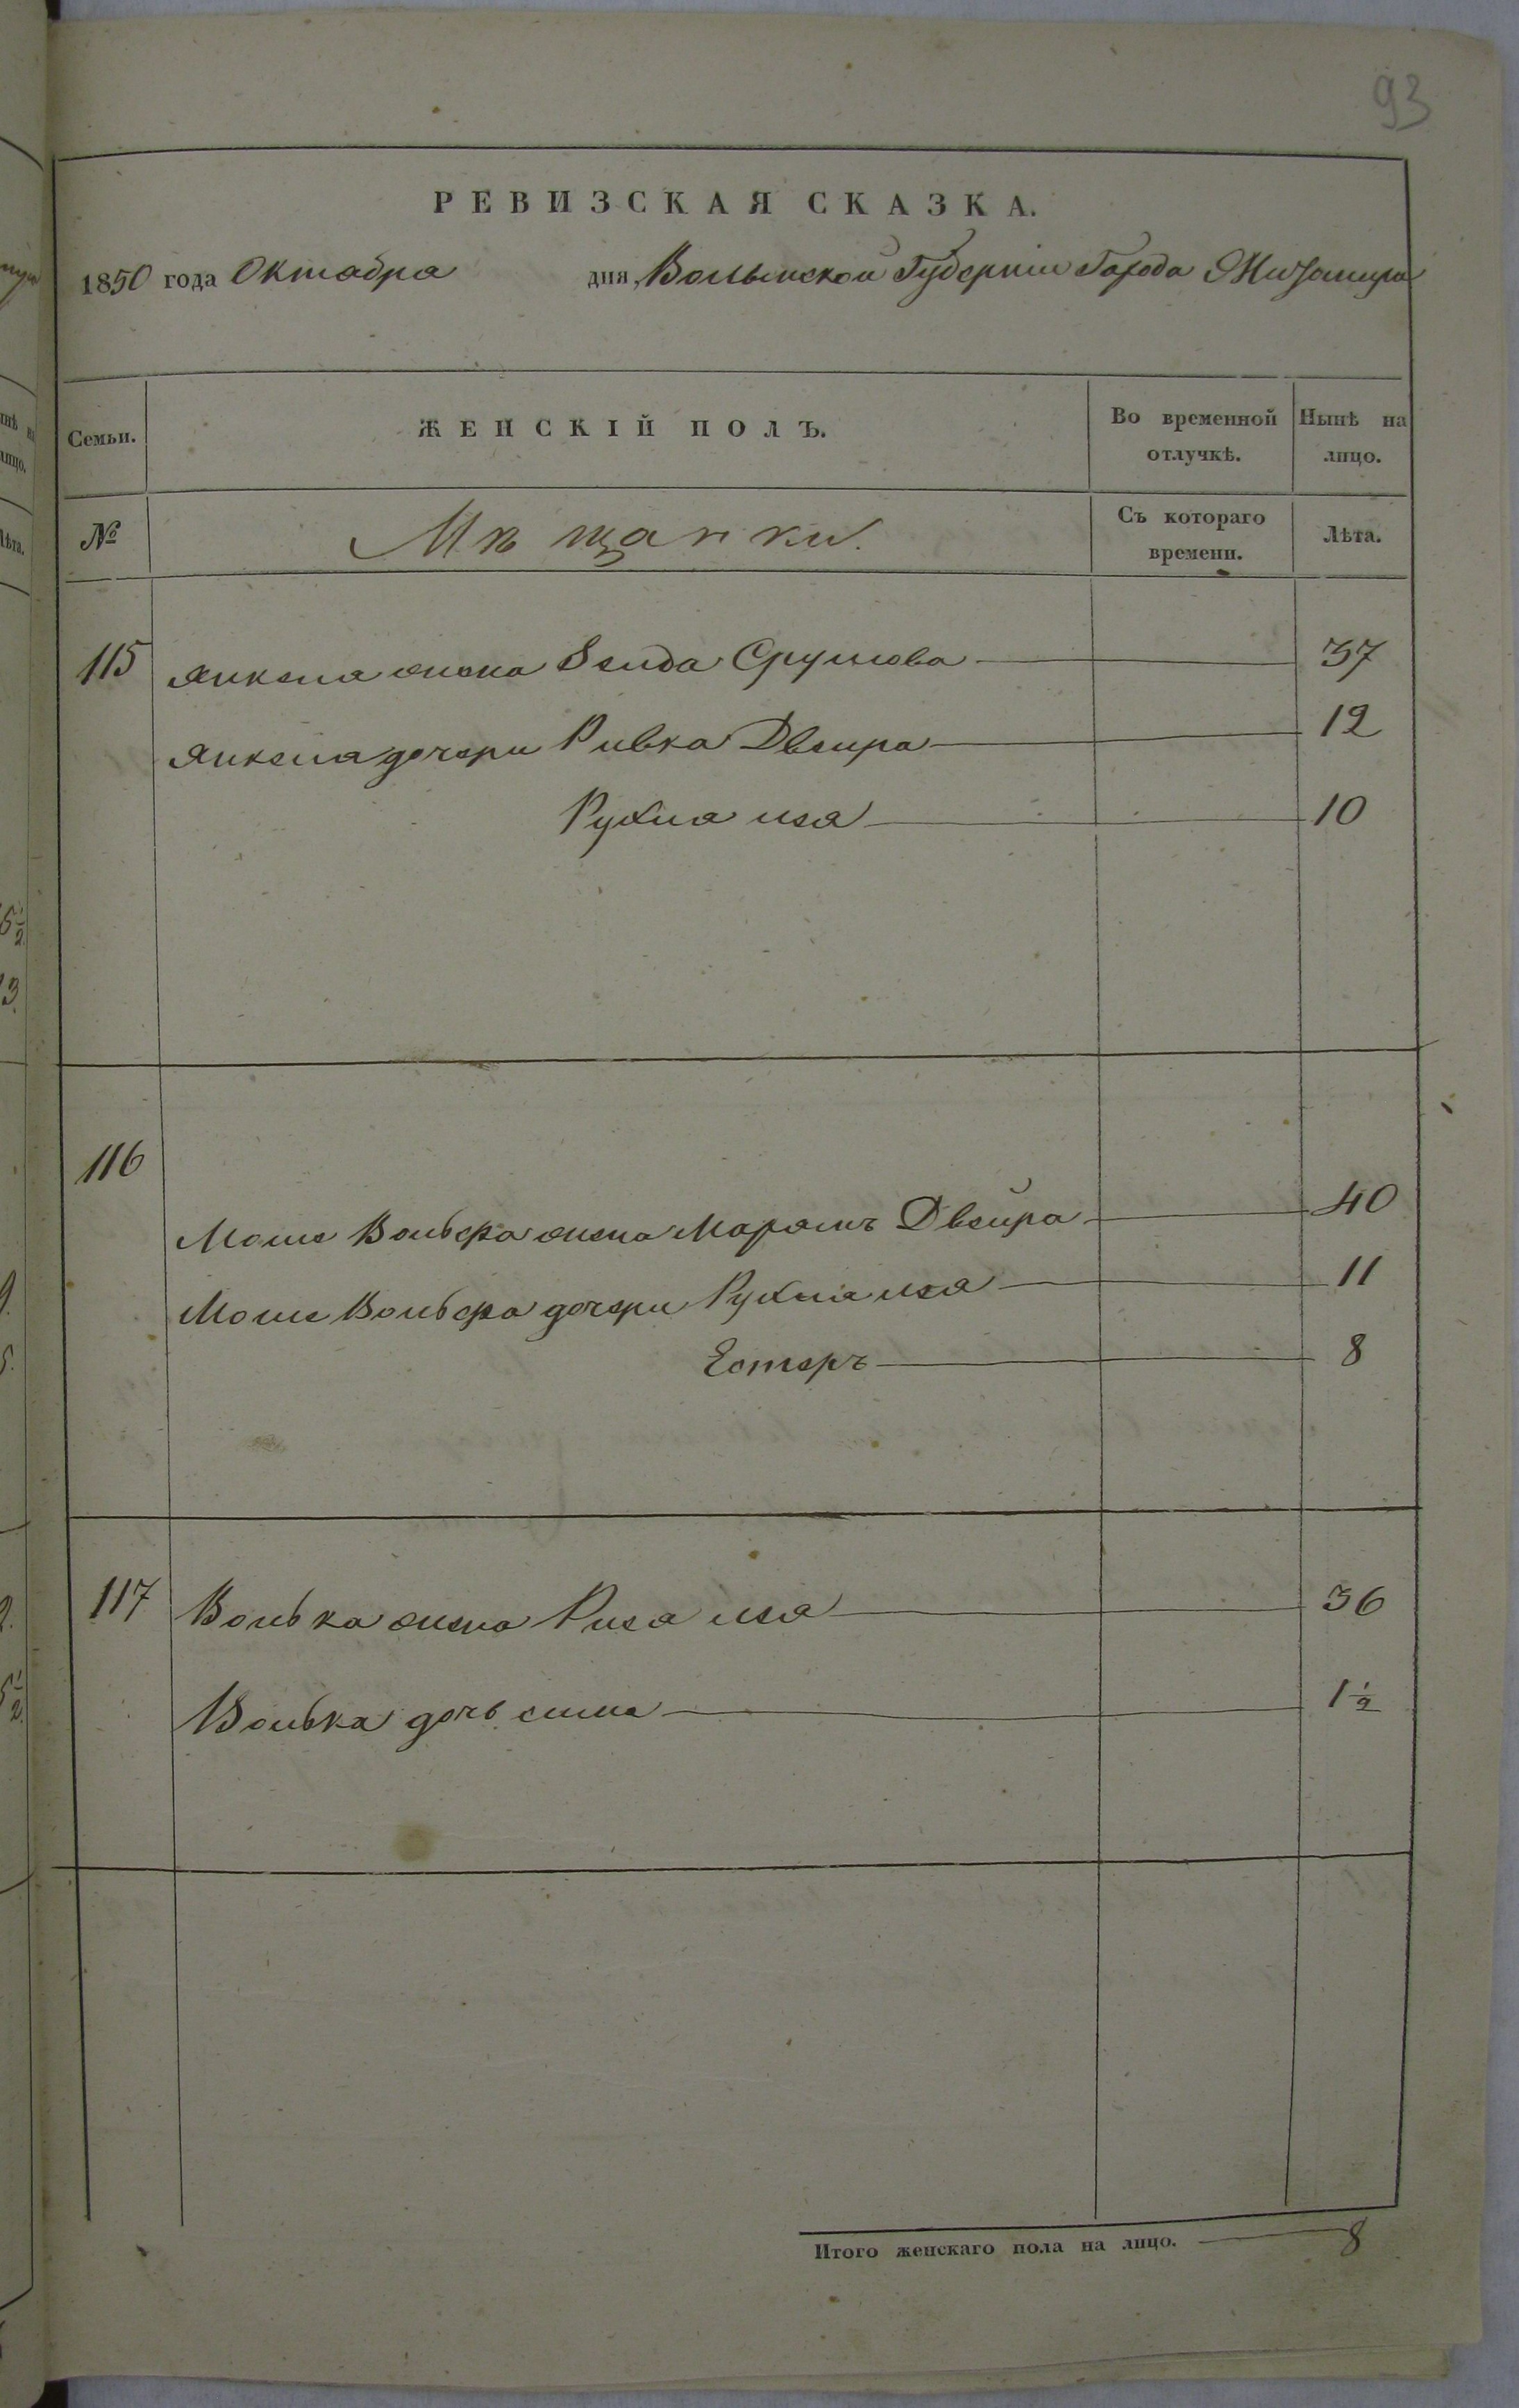 93
РЕВИЗСКАЯ СКАЗКА.
1850 года Октабра дня, Волынской Губерніи Города Житомира
Семьи. ЖЕНСКІЙ ПОЛЪ. Во временной отлучкѣ. Нынѣ на лицо.
№ Мѣщанки. Съ котораго времени. Лѣта.
115 Янкеля жена Зелда Срулова 37
Янкеля дочери Ривка Двейра 12
Рухля лея 10
116
Моше Вольфа жена Марямъ Двейра 40
Моше Вольфа дочери Рухля лея 11
Естеръ 8
117 Волька жена Риза лея 36
Волька дочь симе 1 1/2
Итого женскаго пола на лицо. 8